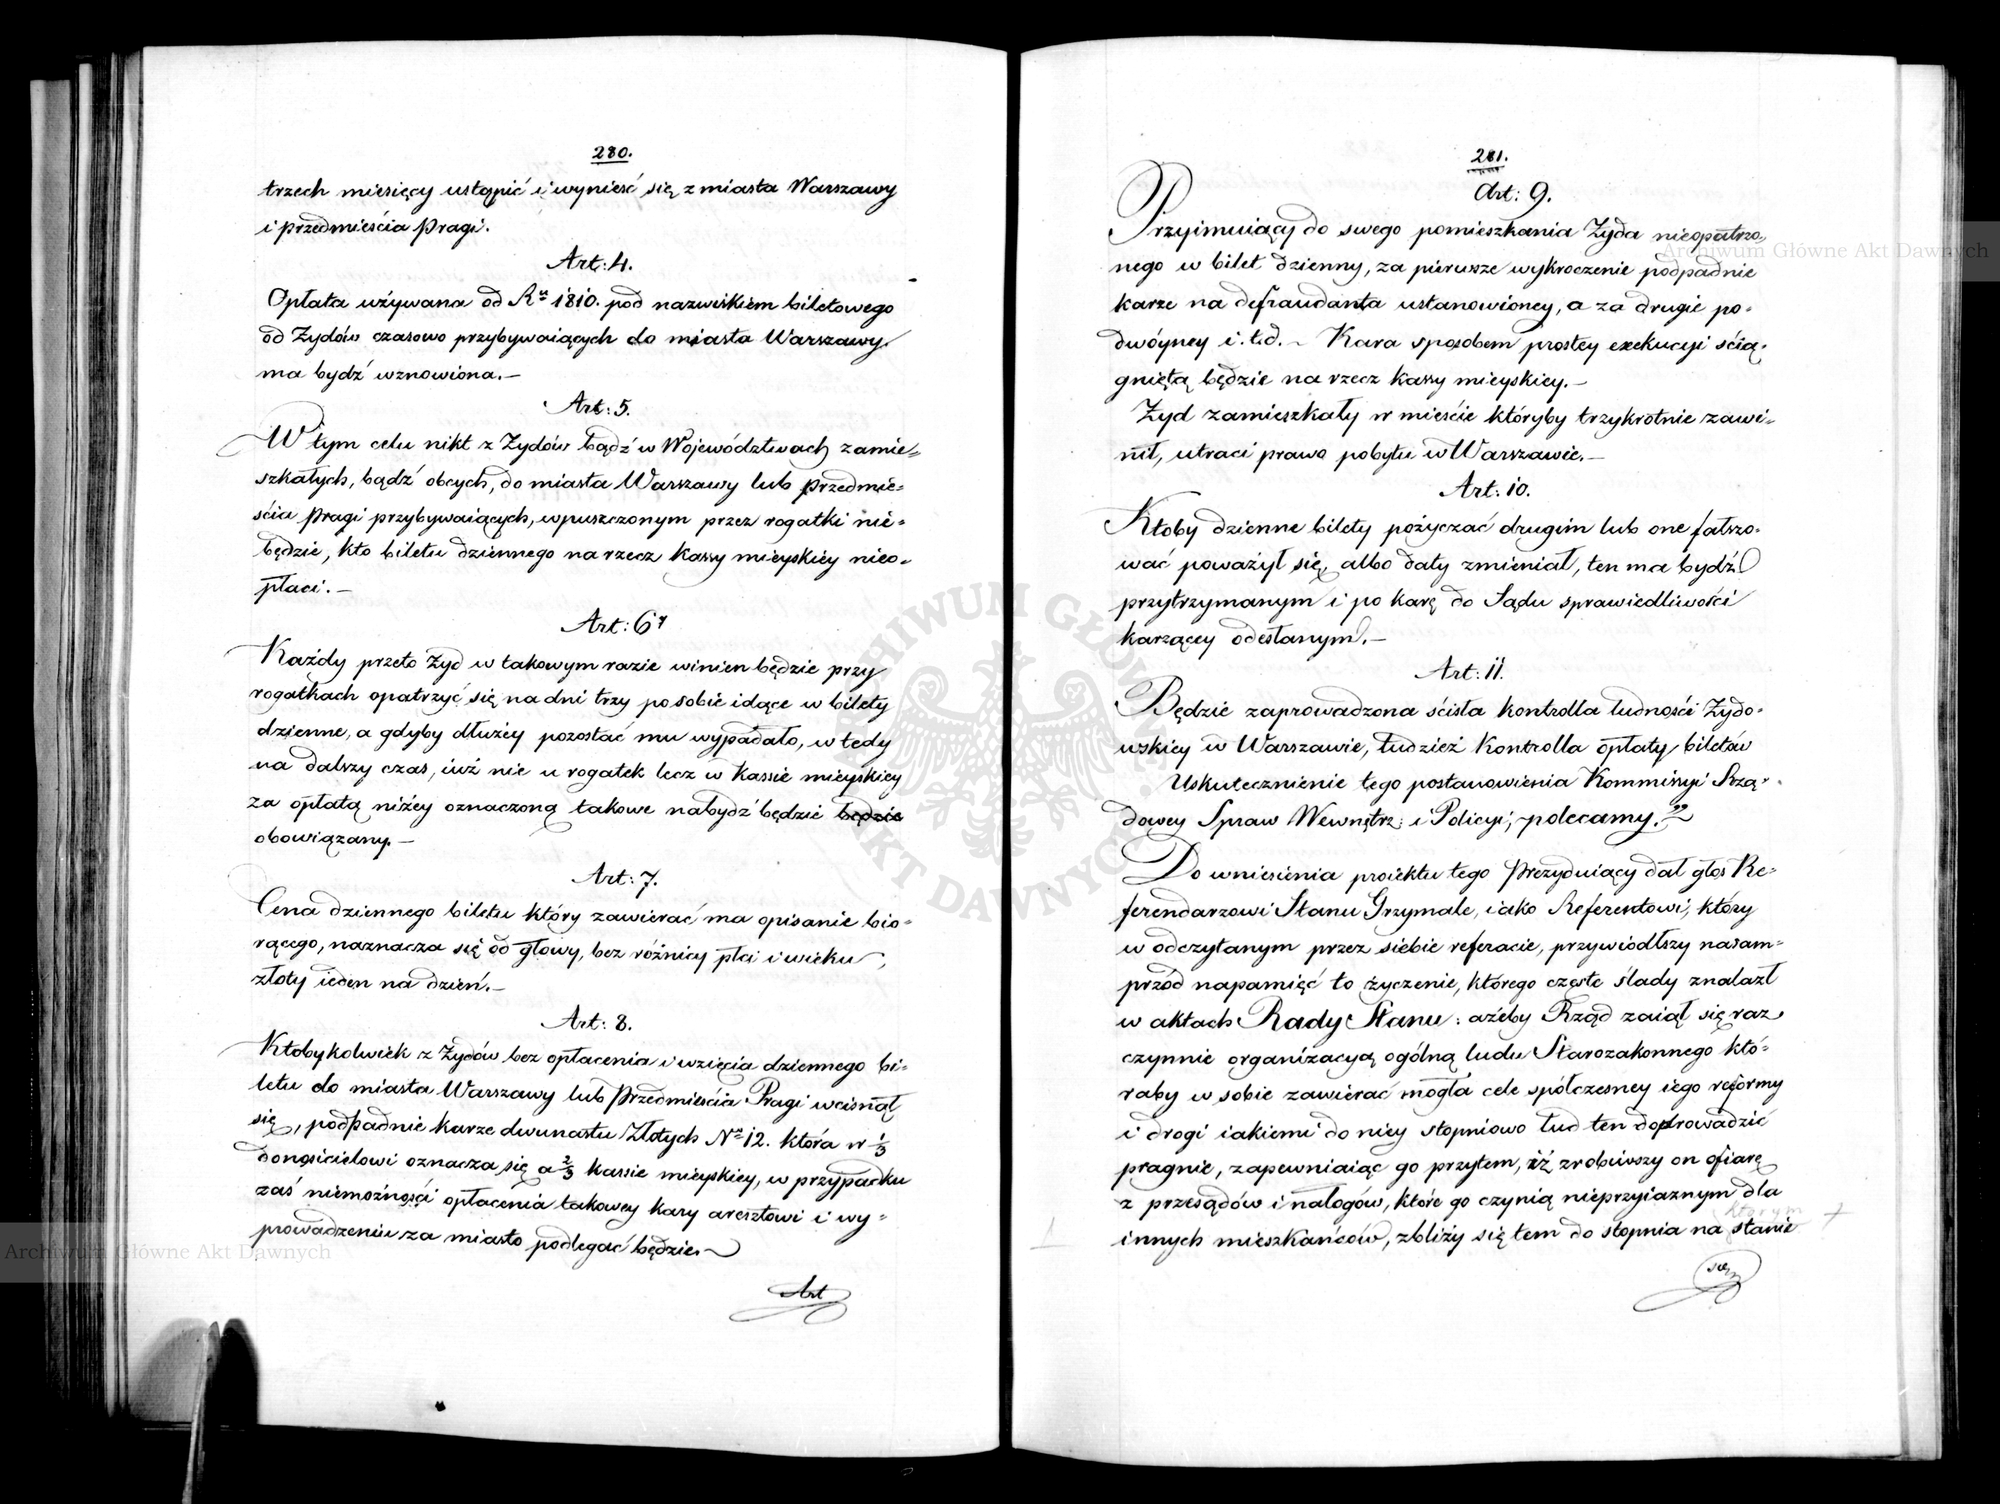 280.
trzech miesięcy ustąpić i wynieść się z miasta Warszawy
i przedmieścia Pragi.
Art: 4.
Opłata używana od Ru 1810. pod nazwiskiem biletowego
od Żydów czasowo przybywaiących do miasta Warszawy
ma bydź wznowiona.—
Art: 5.
W tym celu nikt z Żydów bądź w Województwach zamie=
szkałych, bądź obcych, do miasta Warszawy lub przedmie=
ścia Pragi przybywaiących, wpuszczonym przez rogatki nie=
będzie, kto biletu dziennego na rzecz kassy mieyskiey nieo=
płaci.—
Art: 6
Każdy przeto Żyd w takowym razie winien będzie przy
rogatkach opatrzyć się na dni trzy po sobie idące w bilety
dzienne, a gdyby dłużey pozostać mu wypadało, w tedy
na dalszy czas, iuż nie u rogatek lecz w Kassie mieyskiey
za opłatą niżey oznaczoną takowe nabydź będzie będzie
obowiązany.—
Art: 7.
Cena dziennego biletu który zawierać ma opisanie bio=
rącego, naznacza się od głowy, bez różnicy płci i wieku,
złoty ieden na dzień.—
Art: 8.
Ktobykolwiek z Żydów bez opłacenia i wzięcia dziennego bi=
letu do miasta Warszawy lub Przedmieścia Pragi wcisnął
się, podpadnie karze dwunastu Złotych No 12. która w 1/3
donosicielowi oznacza się a 2/3 kassie mieyskiey, w przypadku
zaś niemożności opłacenia takowey kary aresztowi i wy=
prowadzeniu za miasto podlegać będzie.—
Art
281.
Art: 9.
Przyimuiący do swego pomieszkania Żyda nieopatrzo=
nego w bilet dzienny, za pierwsze wykroczenie podpadnie
karze na defraudanta ustanowioney, a za drugie po=
dwóyney i.t.d.— Kara sposobem prostey exekucyi ścią=
gniętą będzie na rzecz kassy mieyskiey.—
Żyd zamieszkały w mieście któryby trzykrotnie zawi=
nił, utraci prawo pobytu w Warszawie.—
Art: 10.
Ktoby dzienne bilety pożyczać drugim lub one fałszo=
wać poważył się, albo daty zmieniał, ten ma bydź
przytrzymanym i po karę do Sądu sprawiedliwości
karzącey odesłanym.—
Art: 11.
Będzie zaprowadzona ścisła kontrolla ludności Żydo=
wskiey w Warszawie, tudzież Kontrolla opłaty biletów
Uskutecznienie tego postanowienia Kommissyi Rzą=
dowey Spraw Wewnętrz: i Policyi, polecamy."
Do wniesienia proiektu tego Prezyduiący dał głos Re=
ferendarzowi Stanu Grzymale, iako Referentowi, który
w odczytanym przez siebie referacie, przywiódłszy nasam=
przód napamięć to życzenie, którego częste ślady znalazł
w aktach Rady Stanu: ażeby Rząd zaiął się raz
czynnie organizacyą ogólną ludu Starozakonnego któ=
raby w sobie zawierać mogła cele spółczesney iego reformy
i drogi iakiemi do niey stopniowo lud ten doprowadzić
pragnie, zapewniaiąc go przytem, iż zrobiwszy on ofiarę
z przesądów i nałogów, które go czynią nieprzyiaznym dla
którym
innych mieszkańców, zbliży się tem do stopnia na stanie
Archiwum Główne Akt Dawnych
Archiwum Główne Akt Dawnych
Archiwum Główne Akt Dawnych
ARCHIWUM GŁÓWNE AKT DAWNYCH